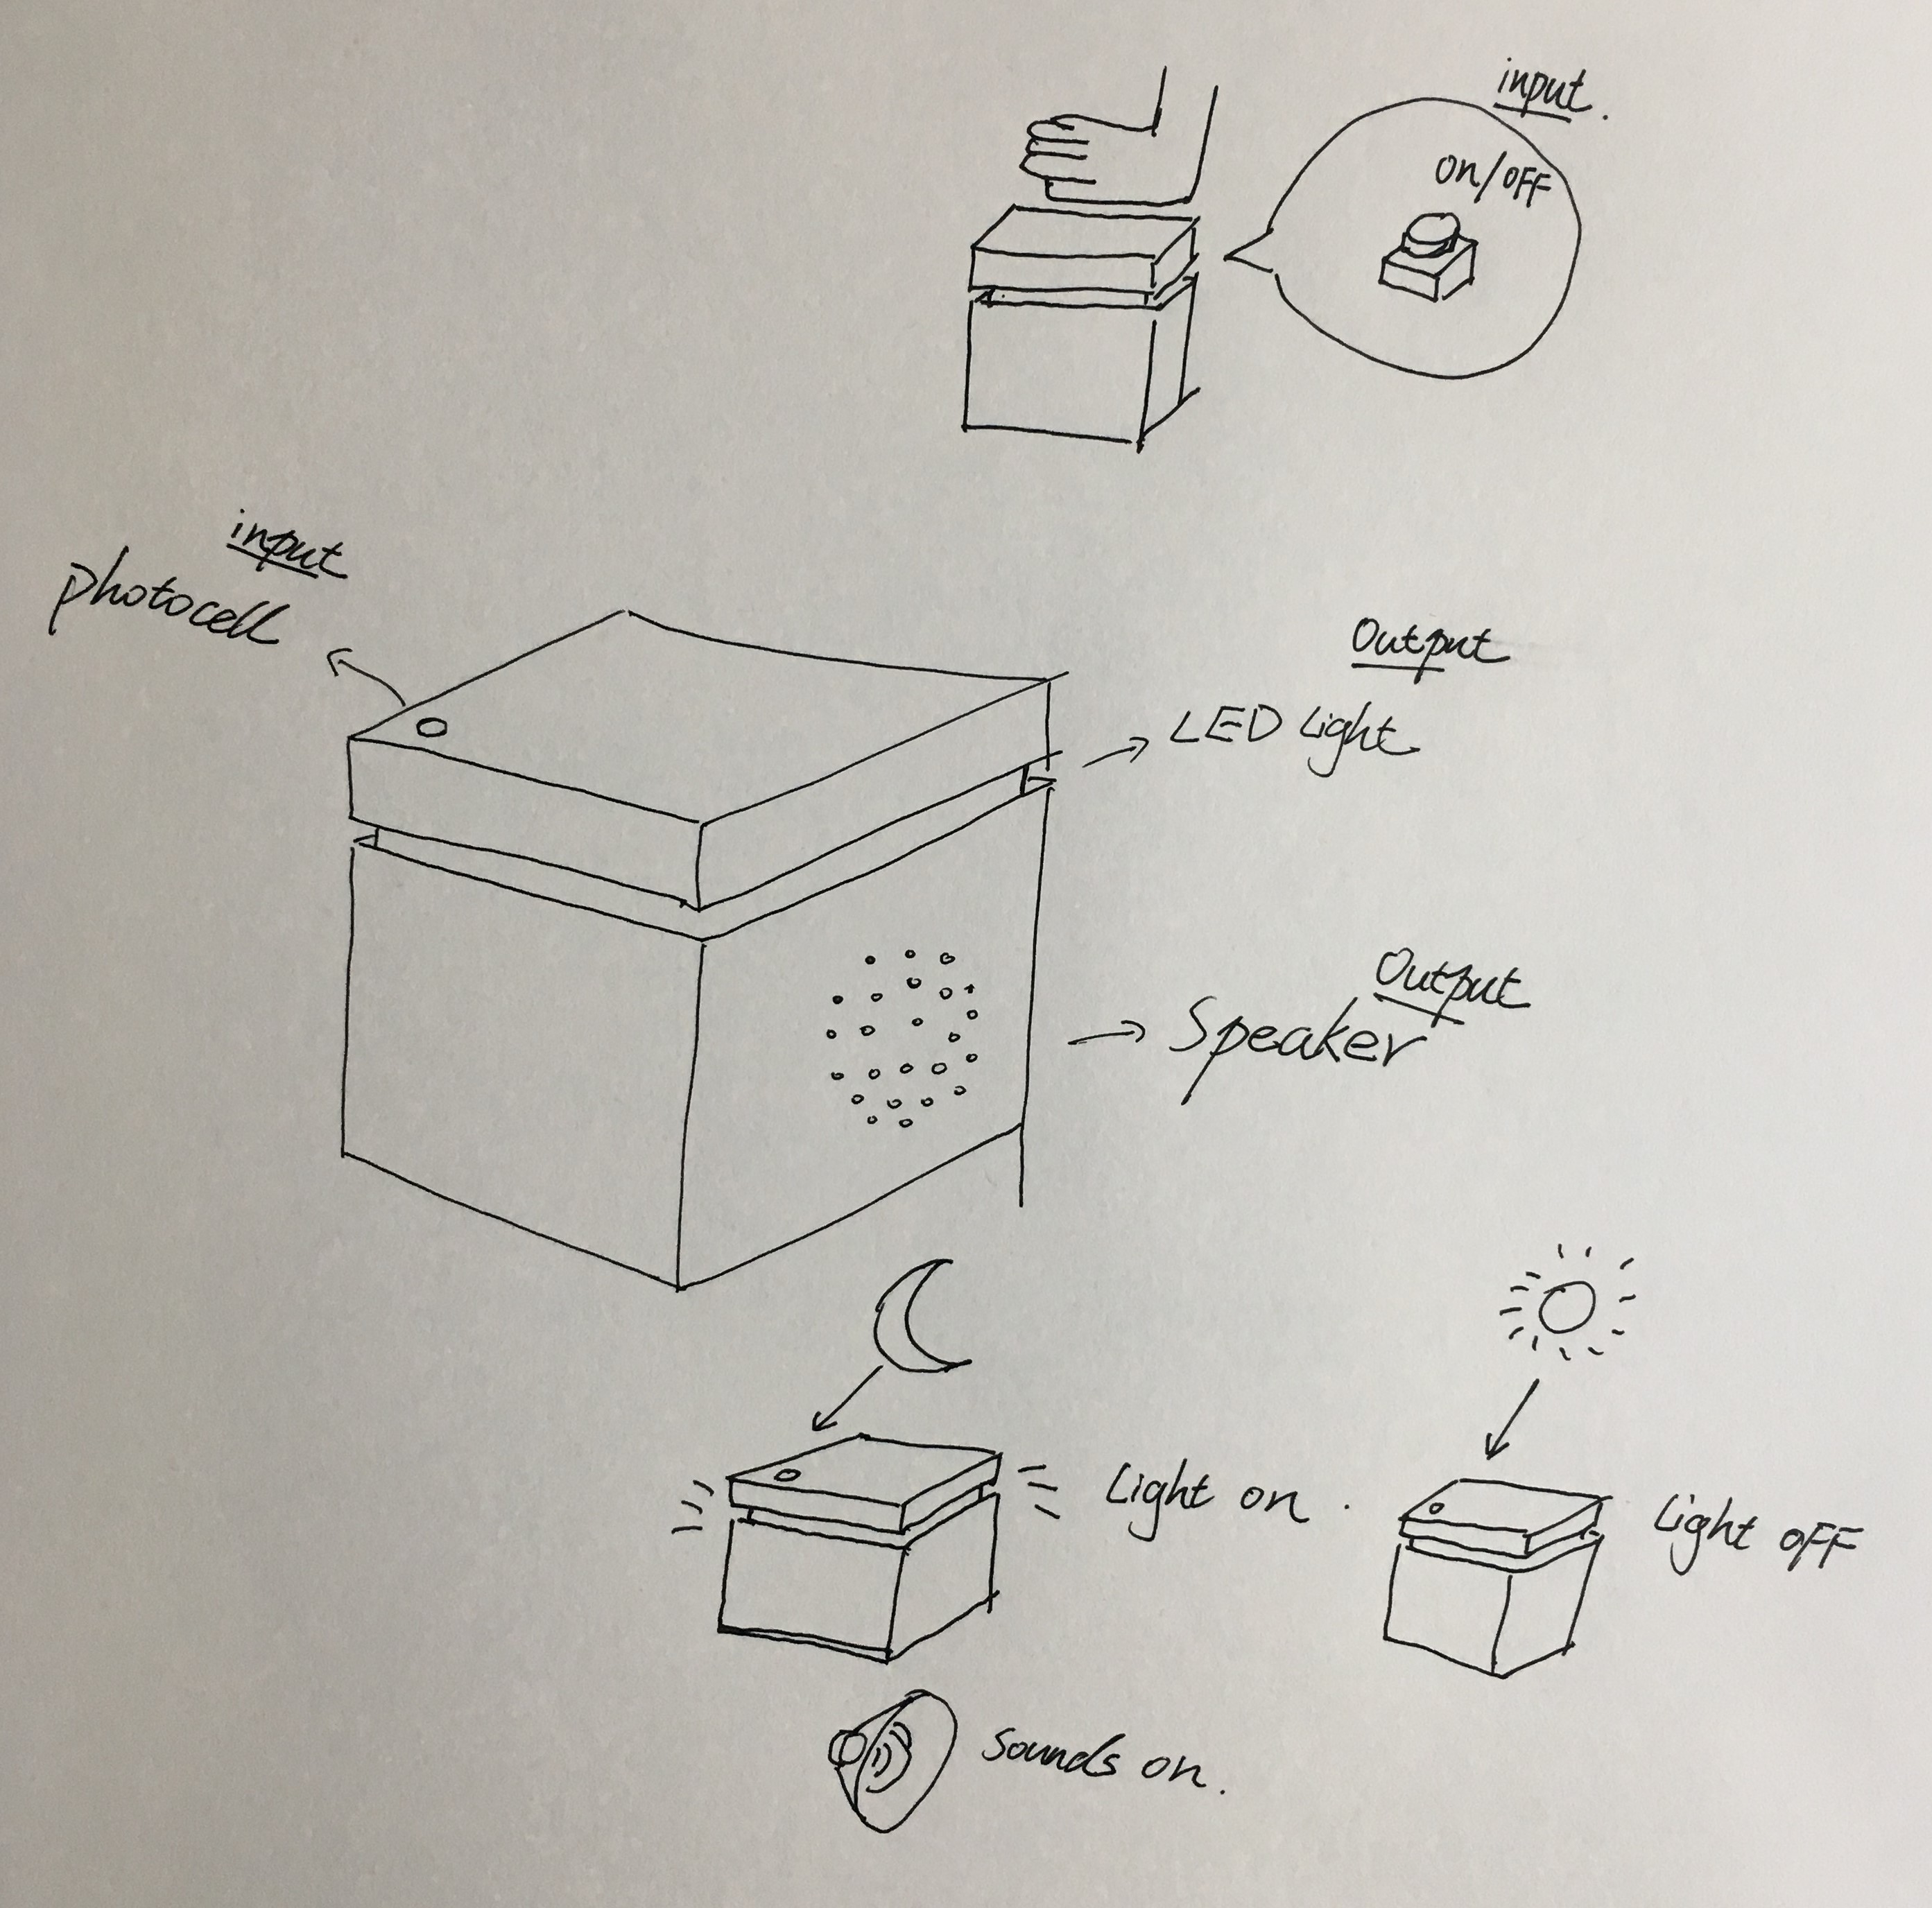 input.
on/OFF
input
photocell
Output
LED Light
Output
Speaker
Light on.
Light OFF
Sounds on.